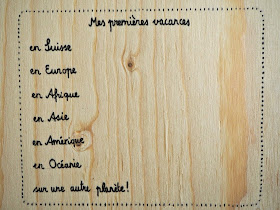 Mes premières vacances
en Suisse
en Europe
en Afrique
en Asie
en Amérique
en Océanie
sur une autre planète!